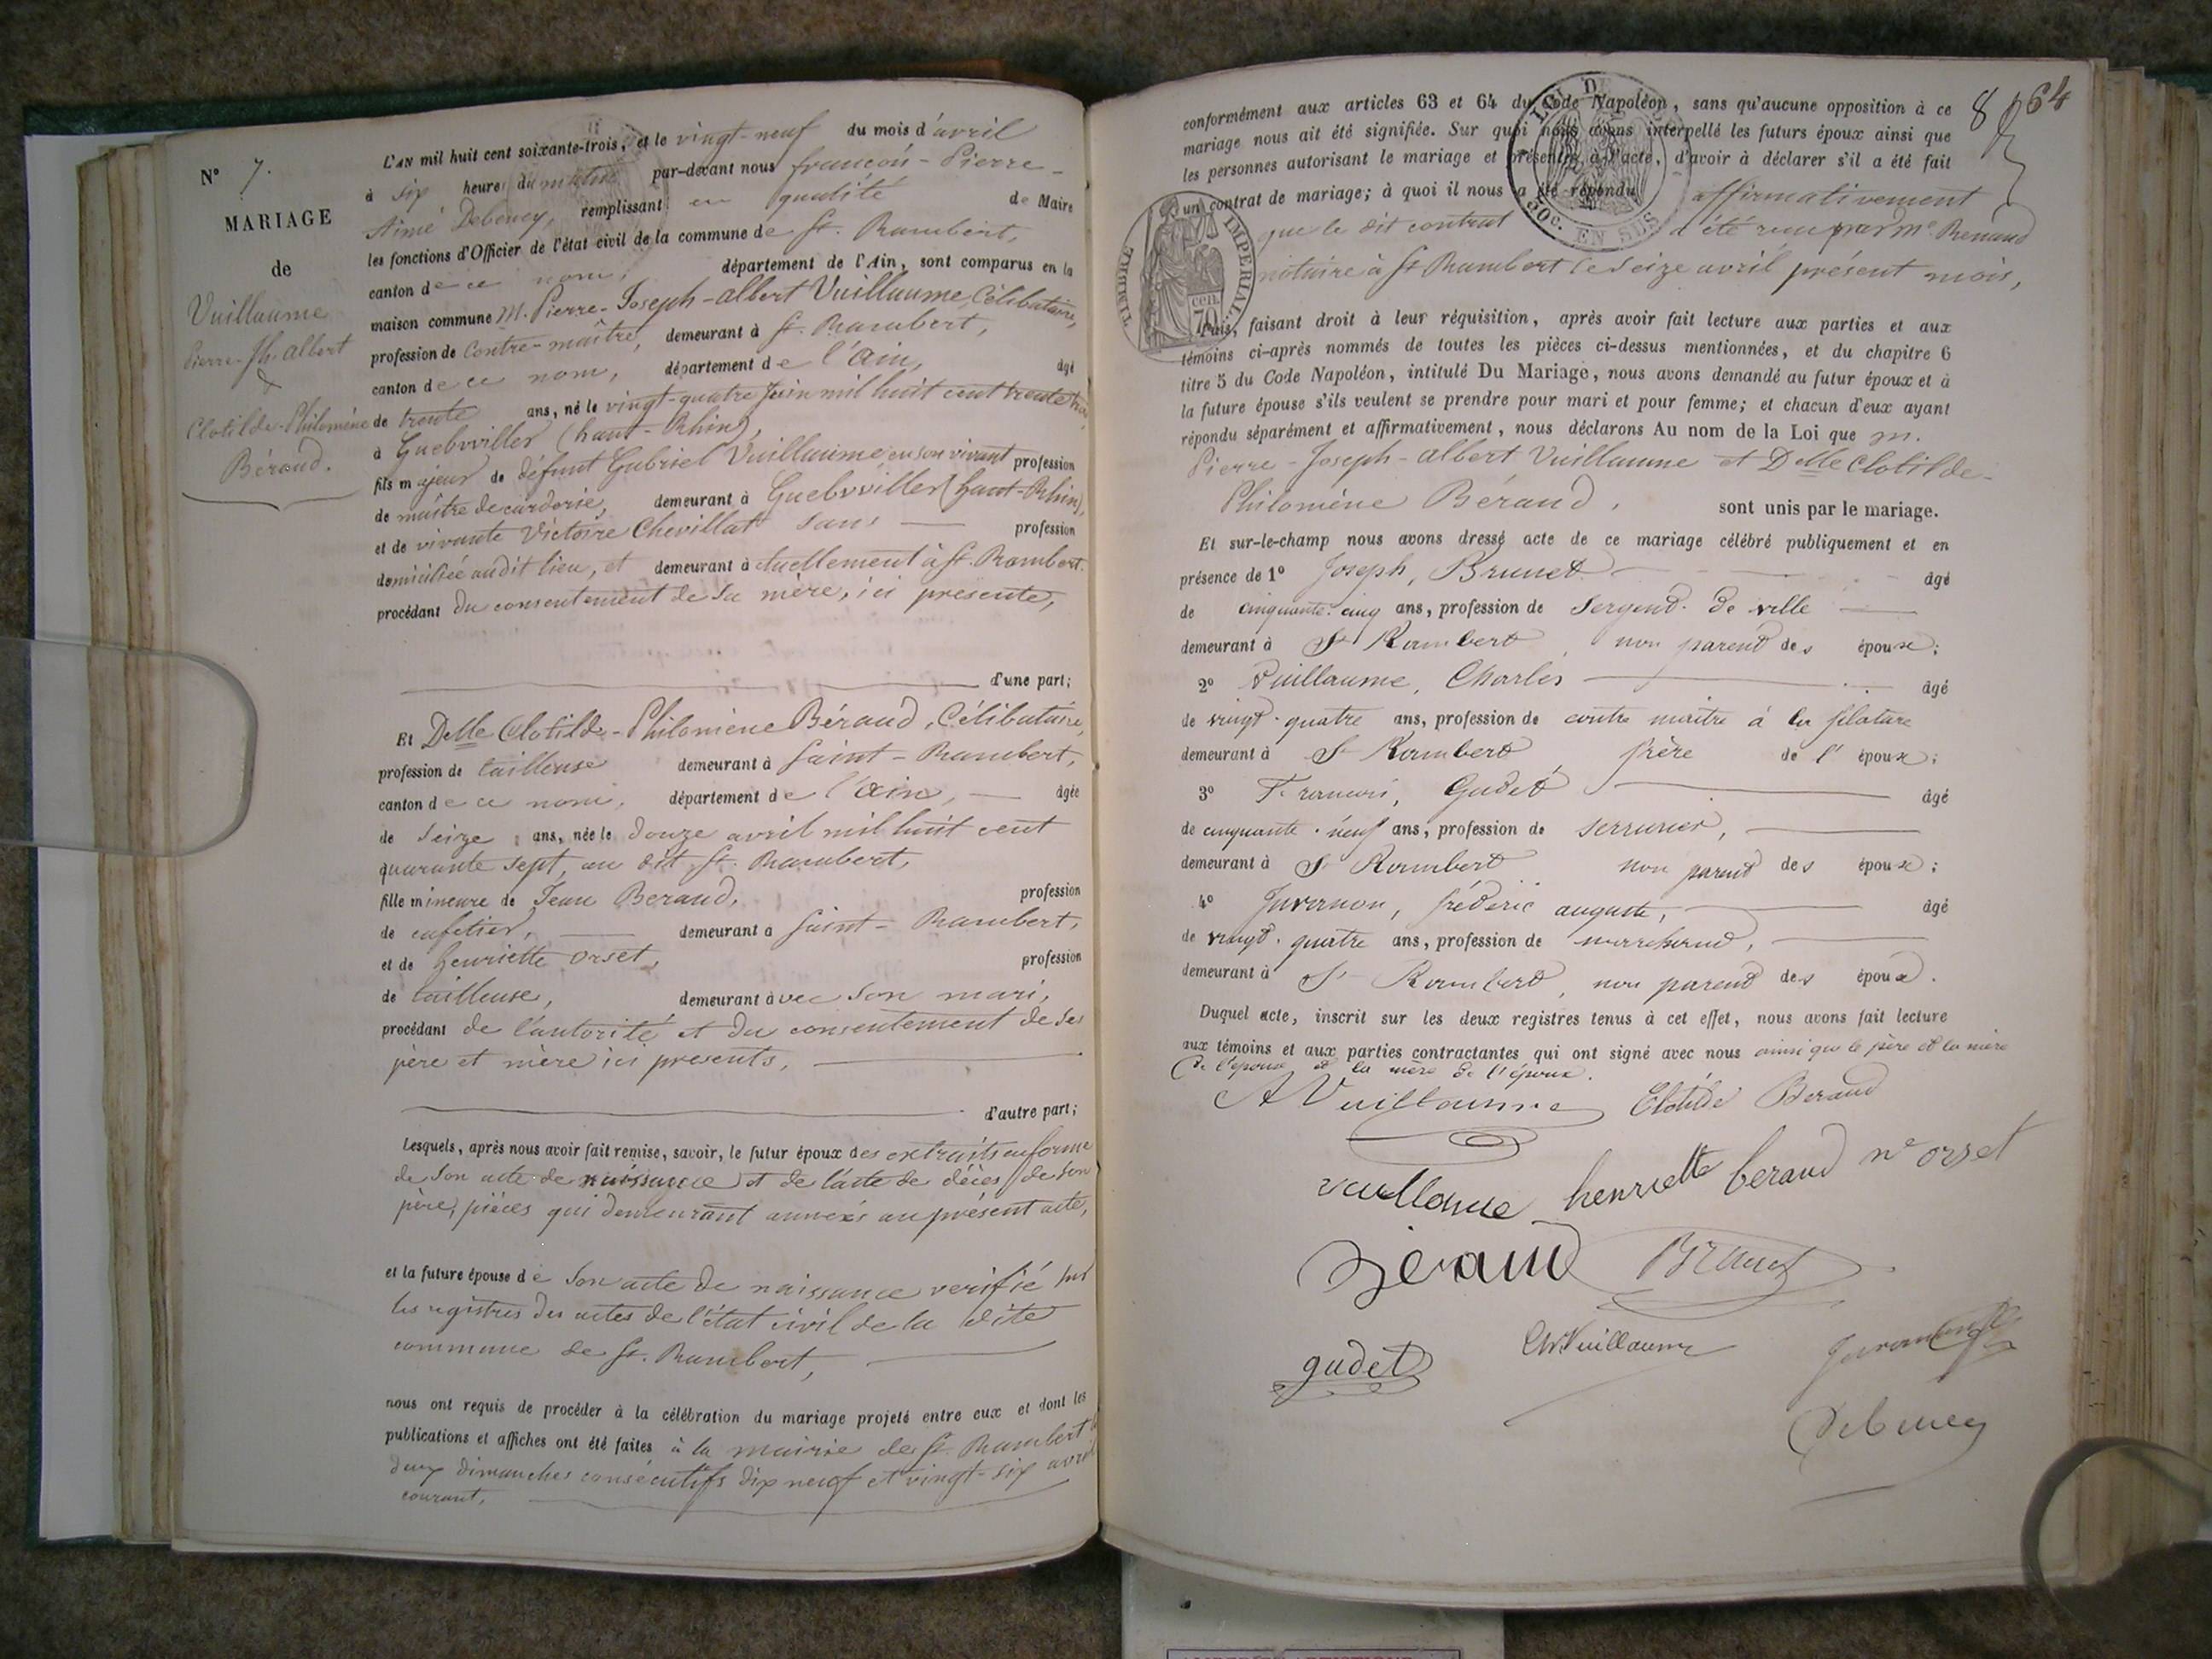 N° 7.
MARIAGE
de
Vuillaume
Pierre-Jh-albert
&
Clotilde-Philomène
Béraud.
L'AN mil huit cent soixante-trois, et le vingt-neuf du mois d'avril
à six heure du matin par-devant nous françois-Pierre-
Aimé Debeney, remplissant en qualité de Maire
les fonctions d'Officier de l'état civil de la commune de St. Rambert,
canton de ce nom, département de l'Ain, sont comparus en la
maison commune M. Pierre-Joseph-albert Vuillaume, Célibataire,
profession de Contre-maître, demeurant à St. Rambert,
canton de ce nom, département de l'ain, âgé
de trente ans, né le vingt-quatre juin mil huit cent trente
à Guebwiller (haut-Rhin),
fils majeur de défunt Gabriel Vuillaume en son vivant profession
de maître de carderie, demeurant à Guebwiller (haut-Rhin),
et de vivante Victoire Chevillat sans profession
domiciliée audit lieu, et demeurant actuellement à St. Rambert.
procédant du consentement de sa mère, ici présente,
d'une part;
Et Delle Clotilde-Philomène Béraud, Célibataire,
profession de tailleuse demeurant à Saint-Rambert,
canton de ce nom, département de l'ain, âgée
de seize ans, née le douze avril mil huit cent
quarante sept, au dit St. Rambert,
fille mineure de Jean Beraud, profession
de cafetier, demeurant à Saint-Rambert,
et de henriette orset, profession
de tailleuse, demeurant avec son mari,
procédant de l'autorité et du consentement de ses
père et mère ici présents,
d'autre part;
Lesquels, après nous avoir fait remise, savoir, le futur époux des extraits en forme
de son acte de naissance et de l'acte de décès de son
père, pièces qui demeurant annexés au présent acte,
et la future épouse de son acte de naissance verifié sur
les registres des actes de l'état civil de la dite
commune de St. Rambert,
nous ont requis de procéder à la célébration du mariage projeté entre eux et dont les
publications et affiches ont été faites à la mairie de St. Rambert
deux dimanches consécutifs dix neuf et vingt-six avril
courant,
8 64
conformément aux articles 63 et 64 du Code Napoléon, sans qu'aucune opposition à ce
mariage nous ait été signifiée. Sur quoi nous avons interpellé les futurs époux ainsi que
les personnes autorisant le mariage et présentes à l'acte, d'avoir à déclarer s'il a été fait
un contrat de mariage; à quoi il nous a été répondu affirmativement
que le dit contrat a été reçu par Me. Renaud
notaire à St Rambert le seize avril présent mois,
50c. EN SUS
TIMBRE IMPERIAL
cen. 70
Puis, faisant droit à leur réquisition, après avoir fait lecture aux parties et aux
témoins ci-après nommés de toutes les pièces ci-dessus mentionnées, et du chapitre 6
titre 5 du Code Napoléon, intitulé Du Mariage, nous avons demandé au futur époux et à
la future épouse s'ils veulent se prendre pour mari et pour femme; et chacun d'eux ayant
répondu séparément et affirmativement, nous déclarons Au nom de la Loi que m.
Pierre-Joseph-albert Vuillaume et Delle Clotilde-
Philomène Béraud, sont unis par le mariage.
Et sur-le-champ nous avons dressé acte de ce mariage célébré publiquement et en
présence de 1° Joseph, Brunet âgé
de cinquante-cinq ans, profession de Sergend de ville
demeurant à St Rambert, non parend des époux;
2° Vuillaume, Charles âgé
de vingt-quatre ans, profession de contre maitre à la filature
demeurant à St Rambert frère de l'époux;
3° François, Gudet âgé
de cinquante-neuf ans, profession de serrurier,
demeurant à St Rambert non parend des époux;
4° Juvanon, frédéric auguste, âgé
de vingt-quatre ans, profession de marchand,
demeurant à St Rambert, non parend des époux.
Duquel acte, inscrit sur les deux registres tenus à cet effet, nous avons fait lecture
aux témoins et aux parties contractantes qui ont signé avec nous ainsi que le père et la mère
de l'épouse et la mère de l'époux.
A Vuillaume Clotilde Beraud
vuillaume henriette beraud né orset
Beraud Brunet
gudet Ch Vuillaume Juvanon
Debeney